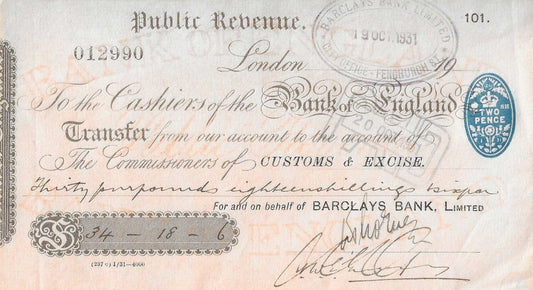 Public Revenue.
101.
012990
BARCLAYS BANK LIMITED
19 OCT. 1931
CITY OFFICE · FENCHURCH ST.
London 19
To the Cashiers of the Bank of England
TWO PENCE
Transfer from our account to the account of
The Commissioners of CUSTOMS & EXCISE.
Thirty four pounds eighteen shillings & sixpence
For and on behalf of BARCLAYS BANK, LIMITED
£ 34 - 18 - 6
(237 o) 1/31—4000